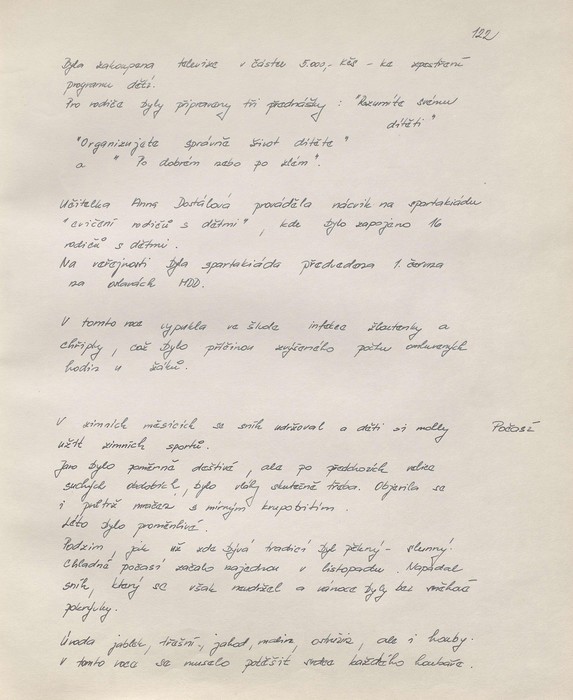 122
Byla zakoupena televize v částce 5.000,- Kčs - ke zpestření
programu dětí.
Pro rodiče byly připraveny tři přednášky : "Rozumíte svému
dítěti"
"Organizujete správně život dítěte"
a " Po dobrém nebo po zlém".
Učitelka Anna Dostálová prováděla nácvik na spartakiádu
"cvičení rodičů s dětmi", kde bylo zapojeno 16
rodičů s dětmi.
Na veřejnosti byla spartakiáda předvedena 1. června
na oslavách MDD.
V tomto roce vypukla ve škole infekce žloutenky a
chřipky, což bylo příčinou zvýšeného počtu omluvených
hodin u žáků.
V zimních měsících se sníh udržoval a děti si mohly Počasí
užít zimních sportů.
Jaro bylo poměrně deštivé, ale po předchozích velice
suchých obdobích, bylo vláhy skutečně třeba. Objevila se
i průtrž mračen s mírným krupobitím.
Léto bylo proměnlivé.
Podzim, jak už zde bývá tradicí byl pěkný - slunný.
Chladné počasí začalo najednou v listopadu. Napadal
sníh, který se však neudržel a vánoce byly bez sněhové
pokrývky.
Úroda jablek, třešní, jahod, malin, ostružin, ale i houby.
V tomto roce se muselo potěšit srdce každého houbaře.